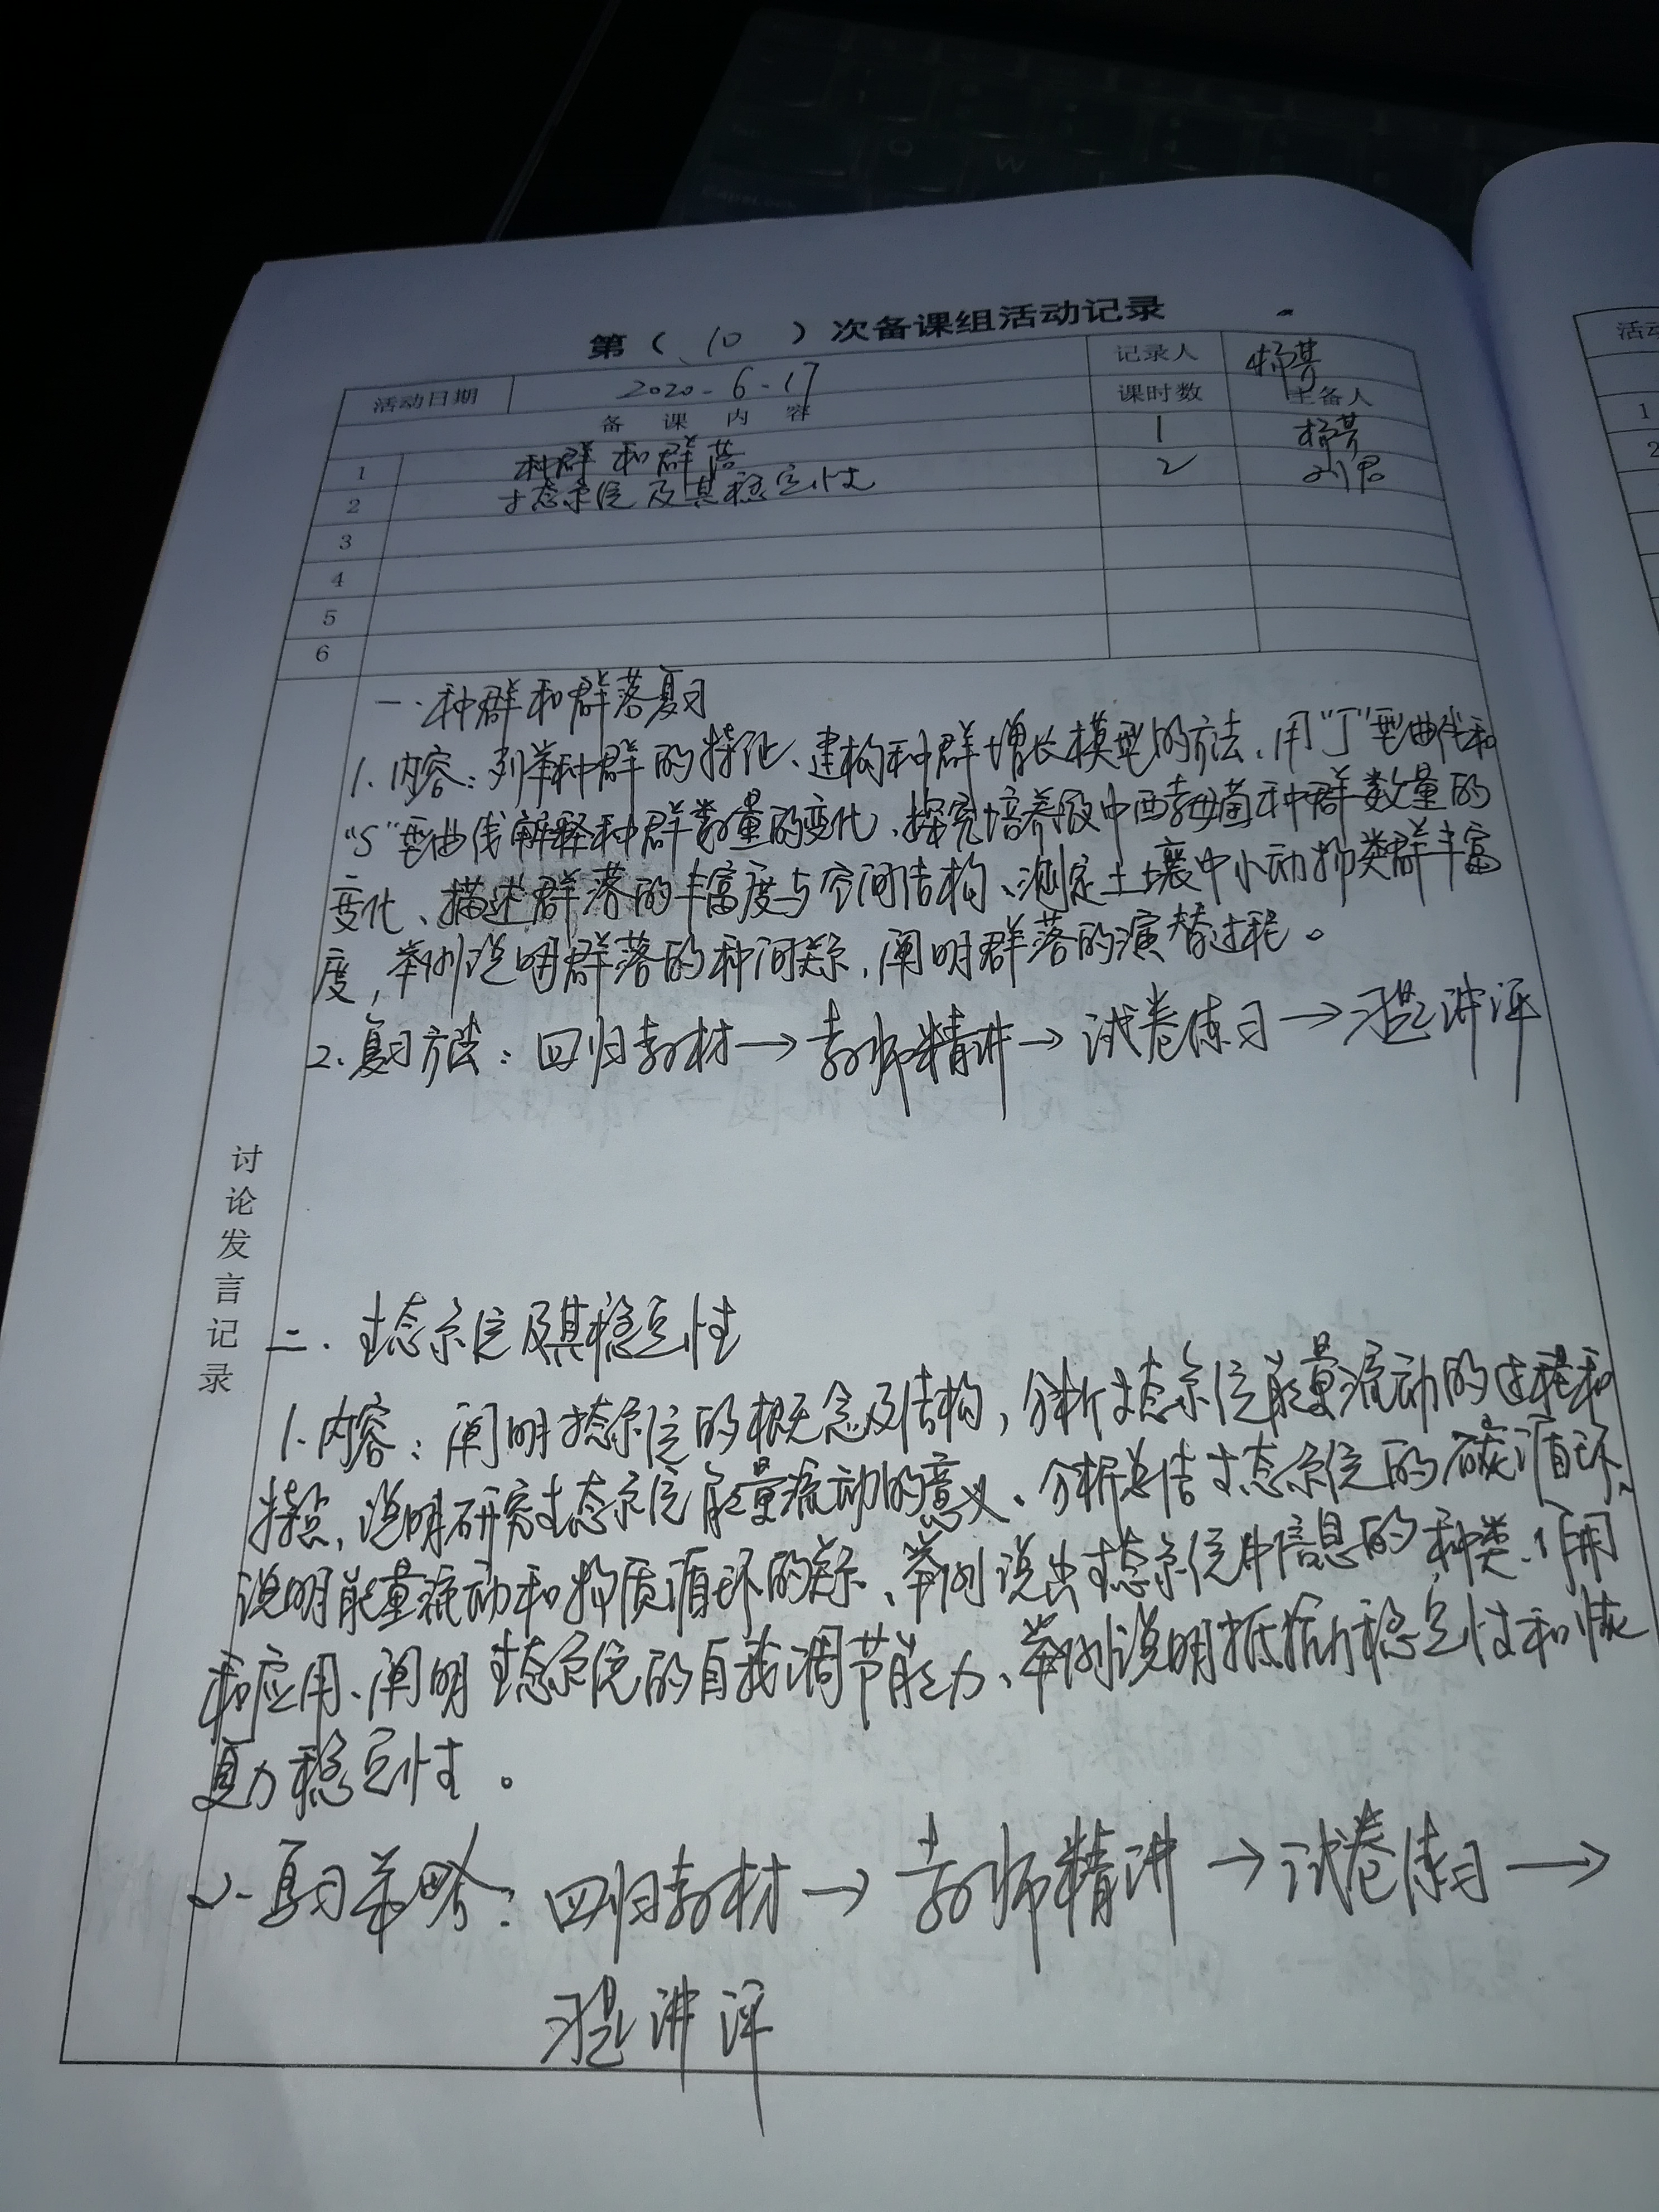 第（ 10 ）次备课组活动记录
活动日期 2020-6-17 记录人
备 课 内 容 课时数 主备人
1 种群和群落 1
2 生态系统及其稳定性 2 刘君
3
4
5
6
讨论发言记录
一.种群和群落复习
1.内容：列举种群的特征、建构种群增长模型的方法、用“J”型曲线和
“S”型曲线解释种群数量的变化、探究培养液中酵母菌种群数量的
变化、描述群落的丰富度与空间结构、测定土壤中小动物类群丰富
度，举例说明群落的种间关系，阐明群落的演替过程。
2.复习方法：回归教材→教师精讲→试卷练习→习题讲评
二.生态系统及其稳定性
1.内容：阐明生态系统的概念及结构，分析生态系统能量流动的过程和
特点，说明研究生态系统能量流动的意义、分析总结生态系统的碳循环、
说明能量流动和物质循环的关系、举例说出生态系统中信息的种类、作用
和应用、阐明生态系统的自我调节能力、举例说明抵抗力稳定性和恢
复力稳定性。
2.复习策略：回归教材→教师精讲→试卷练习→
习题讲评
活动
1
2